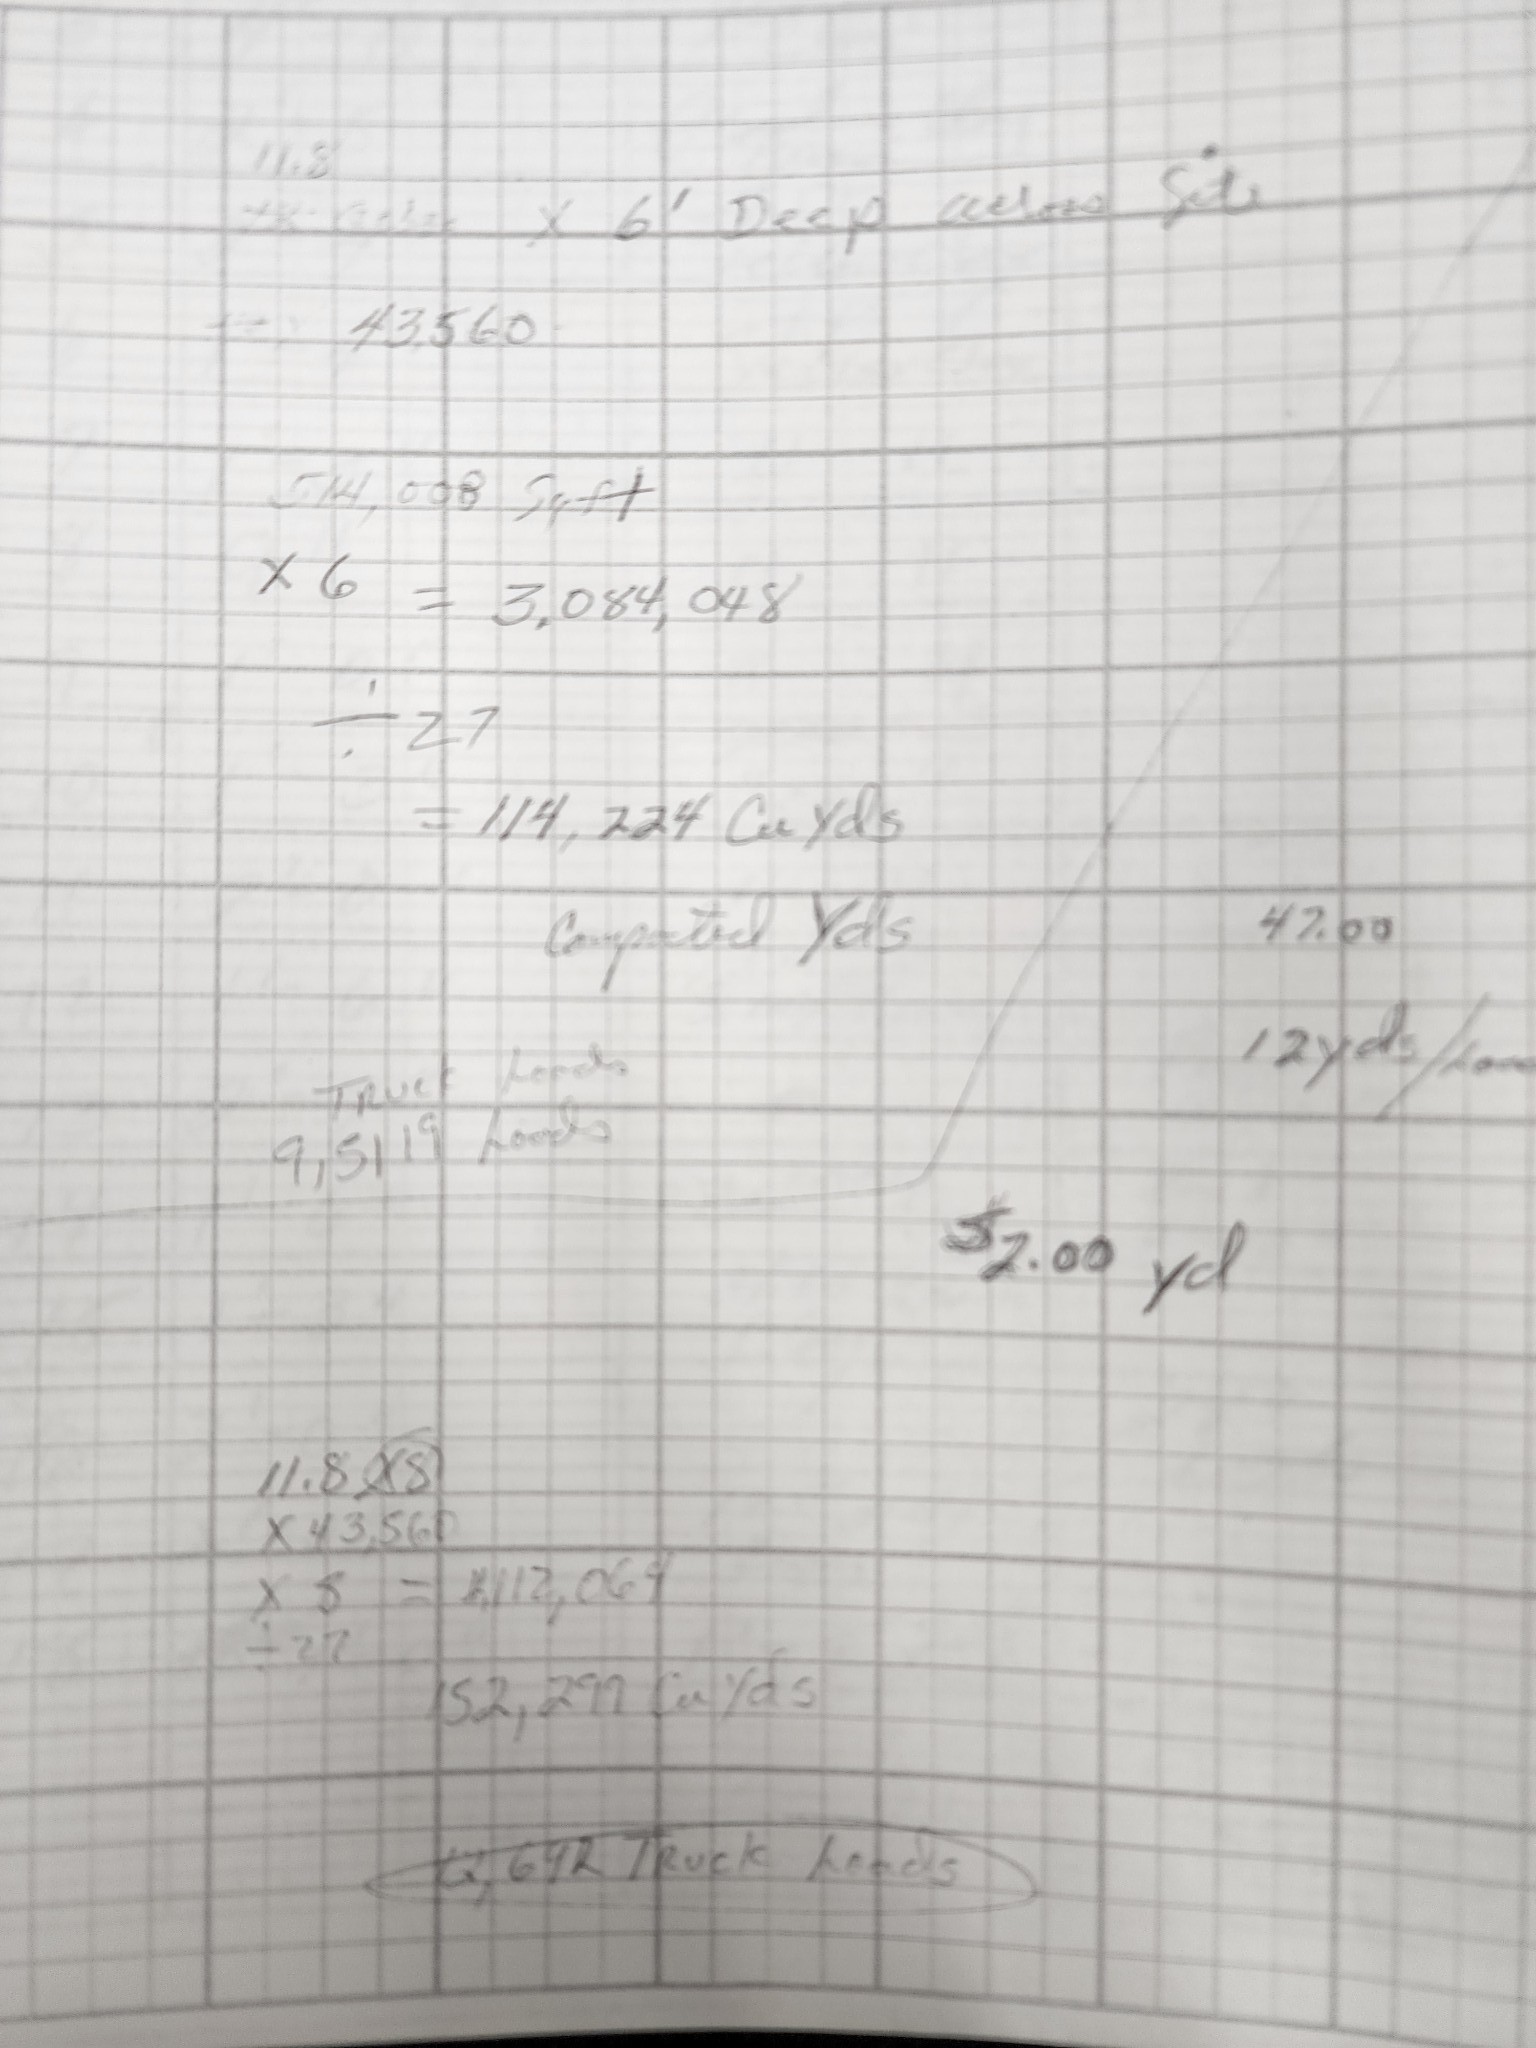 11.8
X 6' Deep across Site
43560
514,008 Sqft
X 6 = 3,084,048
÷ 27
= 114,224 Cu Yds
Compacted Yds
47.00
12 yds/
Truck Loads
9,519 Loads
$2.00 yd
11.8 X8
X 43,560
X 8 = 4,112,064
÷ 27
152,299 Cu Yds
12,692 Truck Loads